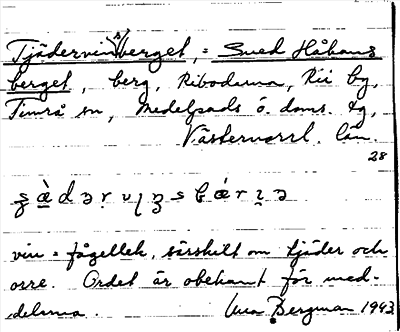 Tjädervinsberget, = Smed Håkans
berget, berg, Ribodarna, Rii by,
Timrå sn, Medelpads ö. doms. tg,
Västernorrl. län.
28
vin = fågellek, särskilt om tjäder och
orre. Ordet är obekant för med-
delarna. Bergman 1943